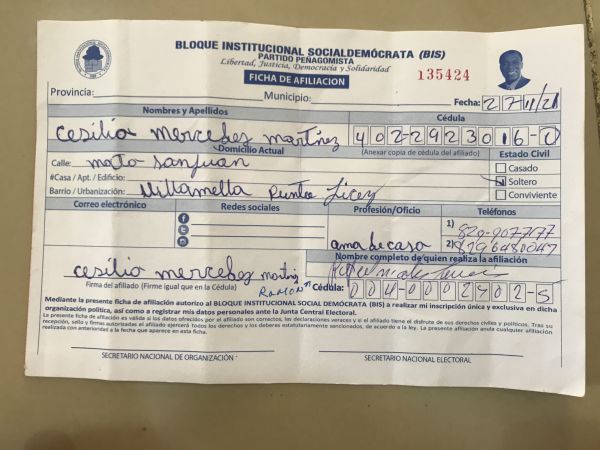 BLOQUE INSTITUCIONAL SOCIALDEMÓCRATA (BIS)
PARTIDO PEÑAGOMISTA
Libertad, Justicia, Democracia y Solidaridad
FICHA DE AFILIACION
135424
Provincia: Municipio: Fecha: 27/11/21
Nombres y Apellidos Cédula
Cesilia mercedez martinez 402-2923016-0
Domicilio Actual (Anexar copia de cédula del afiliado) Estado Civil
Calle: mato sanjuan
Casado
#Casa / Apt. / Edificio: Soltero
Barrio / Urbanización: Villamella Punta Conviviente
Correo electrónico Redes sociales Profesión/Oficio Teléfonos
1) 829-9077177
ama de casa 2) 8296480047
Nombre completo de quien realiza la afiliación
cesilia mercedez martinez
Firma del afiliado (Firme igual que en la Cédula) RAMON Cédula: 004-0002702-5
Mediante la presente ficha de afiliación autorizo al BLOQUE INSTITUCIONAL SOCIAL DEMÓCRATA (BIS) a realizar mi inscripción única y exclusiva en dicha
organización política, así como a registrar mis datos personales ante la Junta Central Electoral.
La presente ficha de afiliación es válida si los datos ofrecidos por el afiliado son correctos, las declaraciones veraces y si el afiliado tiene el disfrute de sus derechos civiles y políticos. Tras su
recepción, sello y firmas autorizadas el afiliado ejercerá todos los derechos y los deberes estatutariamente sancionados, de acuerdo a la ley. La presente afiliación anula cualquier afiliación
realizada con anterioridad a la fecha que aparece en esta ficha.
SECRETARIO NACIONAL DE ORGANIZACIÓN SECRETARIO NACIONAL ELECTORAL